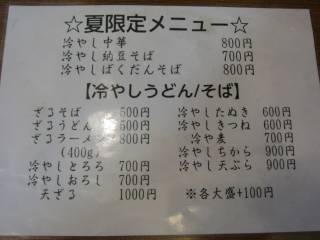 ☆夏限定メニュー☆
冷やし中華 800円
冷やし納豆そば 700円
冷やしばくだんそば 800円
【冷やしうどん/そば】
ざるそば 500円
ざるうどん 500円
ざるラーメン 800円
(400g)
冷やしとろろ 700円
冷やしおろし 700円
天ざる 1000円
冷やしたぬき 600円
冷やしきつね 600円
冷や麦 700円
冷やしちから 900円
冷やし天ぷら 900円
※各大盛+100円